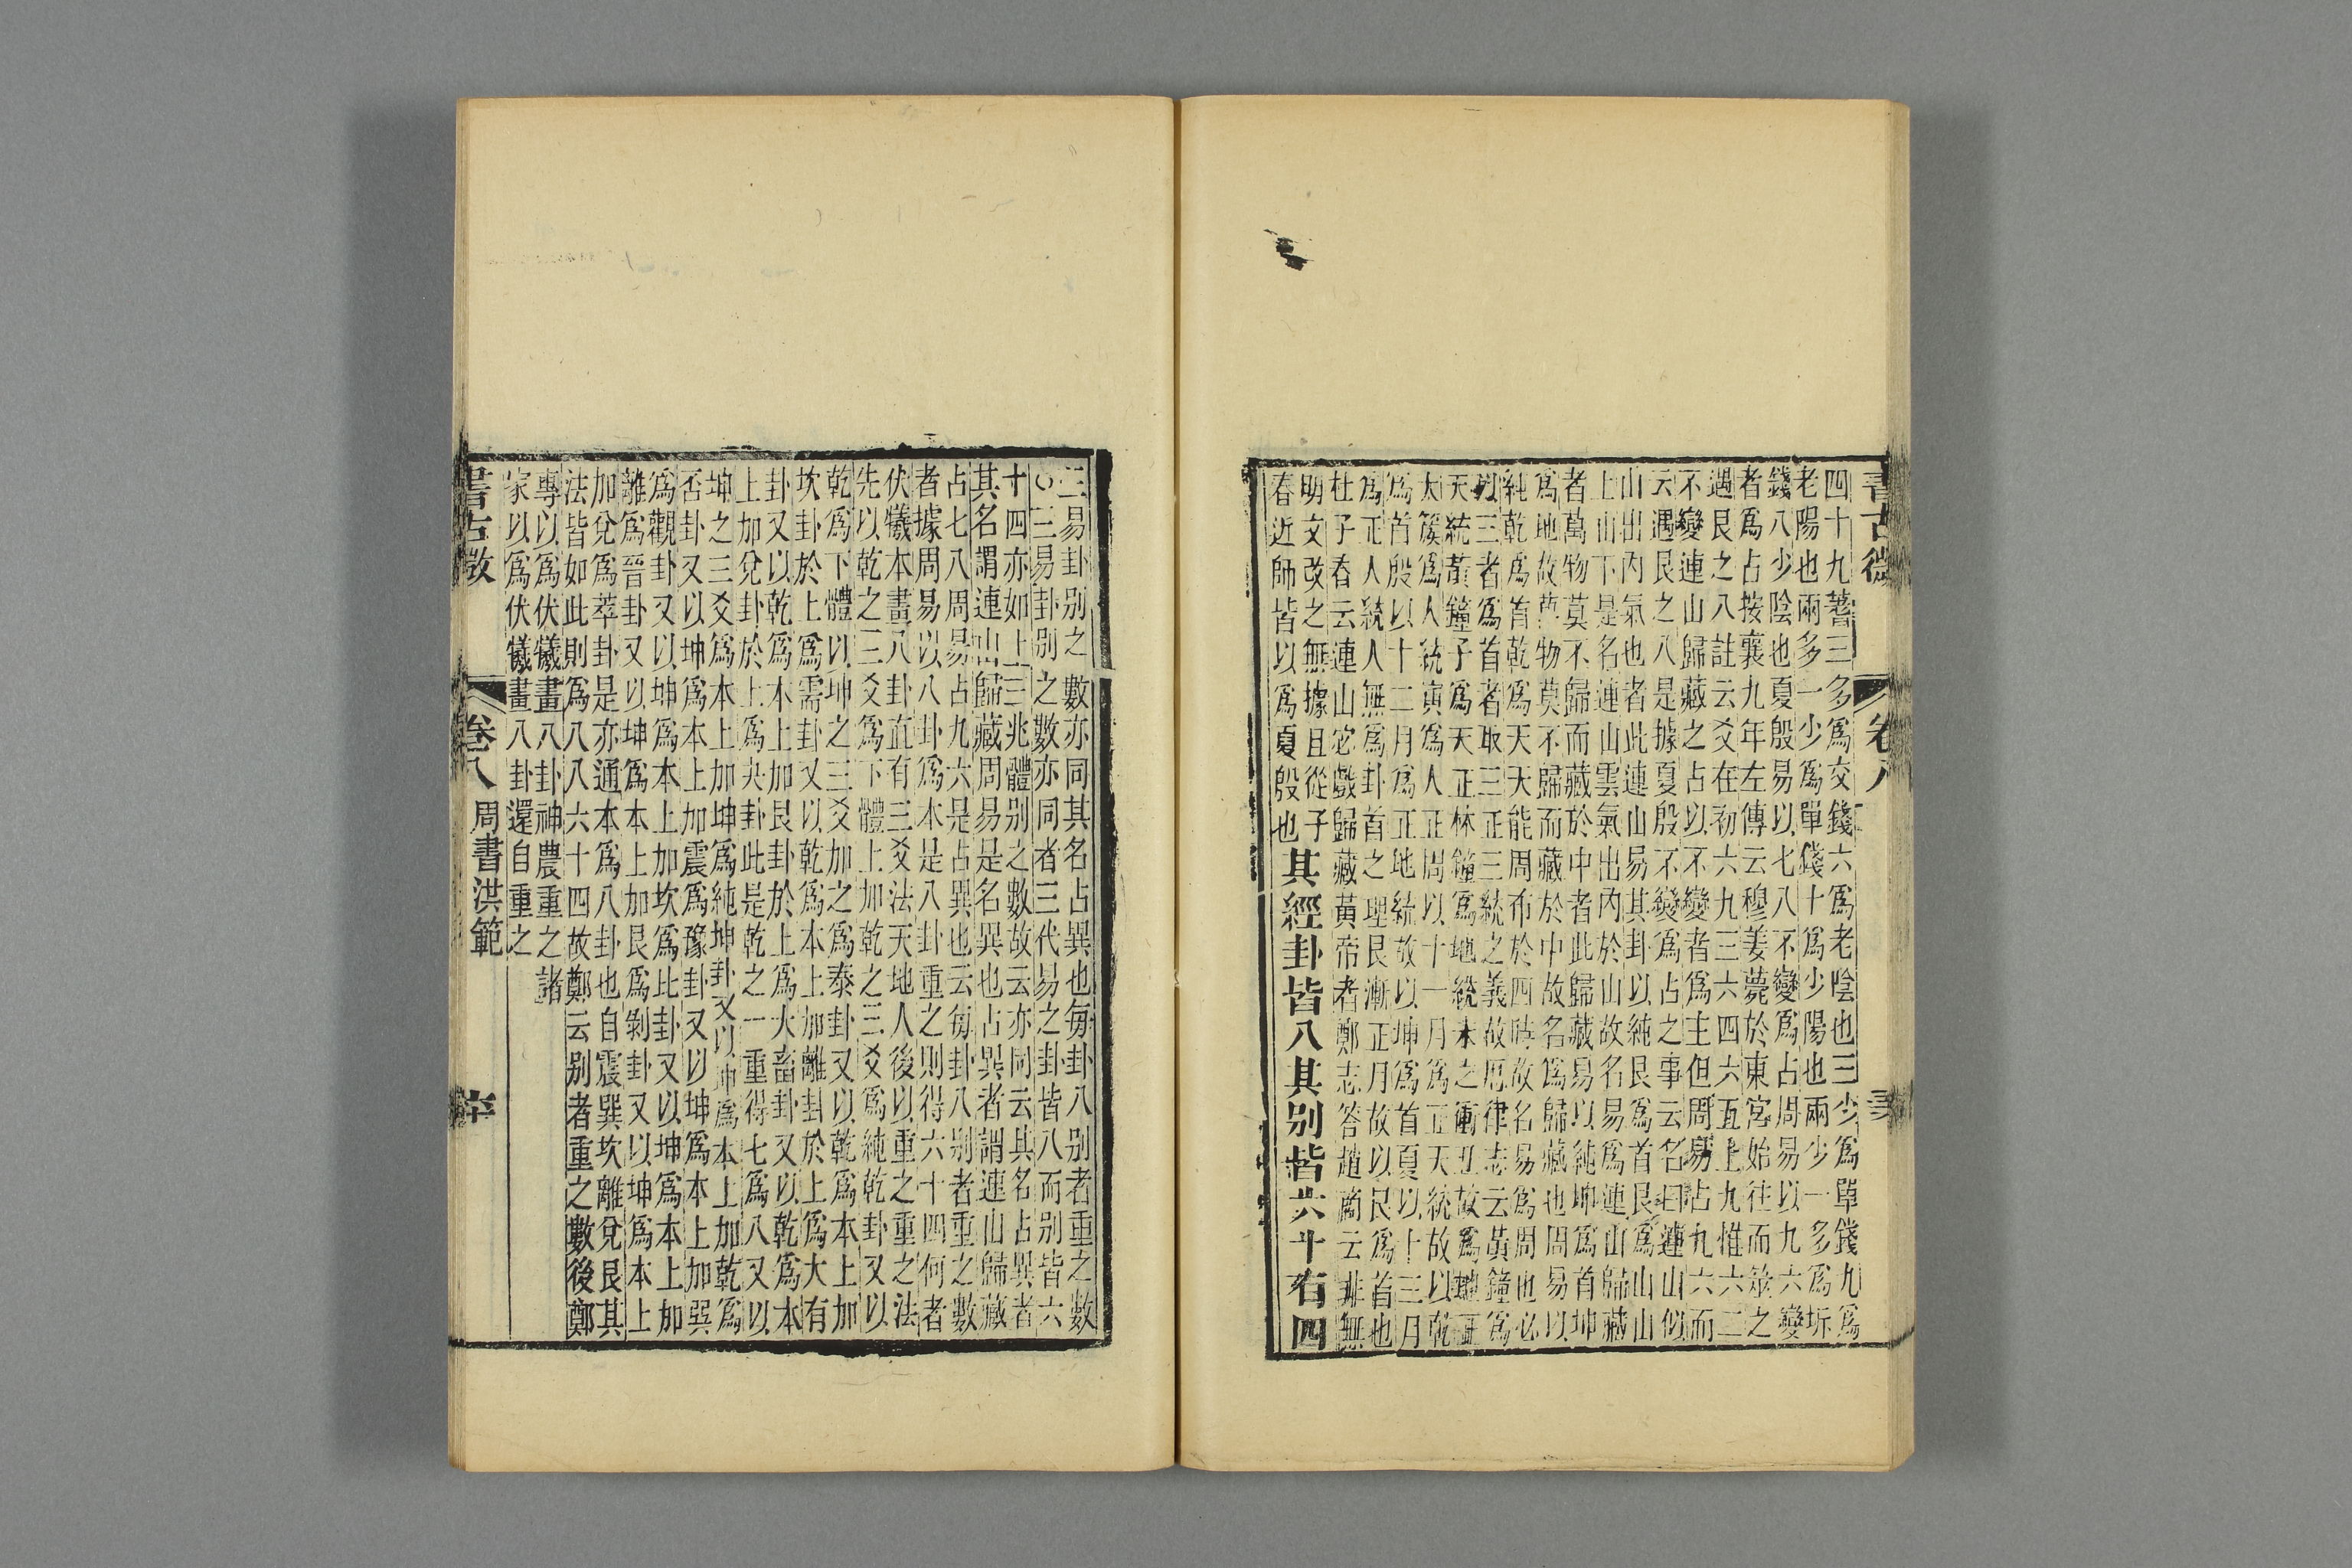 書古微 卷八
四十九蓍三多爲交錢六爲老陰也三少爲單錢九爲
老陽也兩多一少爲單錢十爲少陽也兩少一多爲坼
錢八少陰也夏殷易以七八不變爲占周易以九六變
者爲占按襄九年左傳云穆姜薨於東宮始往而筮之
遇艮之八註云爻在初六九三六四六五上九惟六二
不變連山歸藏之占以不變者爲主但周易占九六而
云遇艮之八是據夏殷不變爲占之事云名曰連山似
山出內氣也者此連山易其卦以純艮爲首艮爲山山
上山下是名連山雲氣出內於山故名易爲連山歸藏
者萬物莫不歸而藏於中者此歸藏易以純坤爲首坤
爲地故萬物莫不歸而藏於中故名爲歸藏也周易以
純乾爲首乾爲天天能周布於四時故名易爲周也必
以三者爲首者取三正三統之義故厯律志云黃鐘爲
天統黃鐘子爲天正林鐘爲地統未之衝丑故爲地正
太簇爲人統寅爲人正周以十一月爲正天統故以乾
爲首殷以十二月爲正地統故以坤爲首夏以十三月
爲正人統人無爲卦首之理艮漸正月故以艮爲首也
杜子春云連山宓戲歸藏黃帝者鄭志答趙商云非無
明文改之無據且從子
春近師皆以爲夏殷也
其經卦皆八其别皆六十有四
三易卦别之數亦同其名占異也每卦八别者重之數
○三易卦别之數亦同者三代易之卦皆八而别皆六
十四亦如上三兆體别之數故云亦同云其名占異者
其名謂連山歸藏周易是名異也占異者謂連山歸藏
占七八周易占九六是占異也云每卦八别者重之數
者據周易以八卦爲本是八卦重之則得六十四何者
伏犧本畫八卦直有三爻法天地人後以重之重之法
先以乾之三爻爲下體上加乾之三爻爲純乾卦又以
乾爲下體以坤之三爻加之爲泰卦又以乾爲本上加
坎卦於上爲需卦又以乾爲本上加離卦於上爲大有
卦又以乾爲本上加艮卦於上爲大畜卦又以乾爲本
上加兌卦於上爲夬卦此是乾之一重得七爲八又以
坤之三爻爲本上加坤爲純坤卦又以坤爲本上加乾爲
否卦又以坤爲本上加震爲豫卦又以坤爲本上加巽
爲觀卦又以坤爲本上加坎爲比卦又以坤爲本上加
離爲晉卦又以坤爲本上加艮爲剝卦又以坤爲本上
加兌爲萃卦是亦通本爲八卦也自震巽坎離兌艮其
法皆如此則爲八八六十四故鄭云别者重之數後鄭
專以爲伏犧畫八卦神農重之諸
家以爲伏犧畫八卦還自重之
書古微 卷八 周書洪範